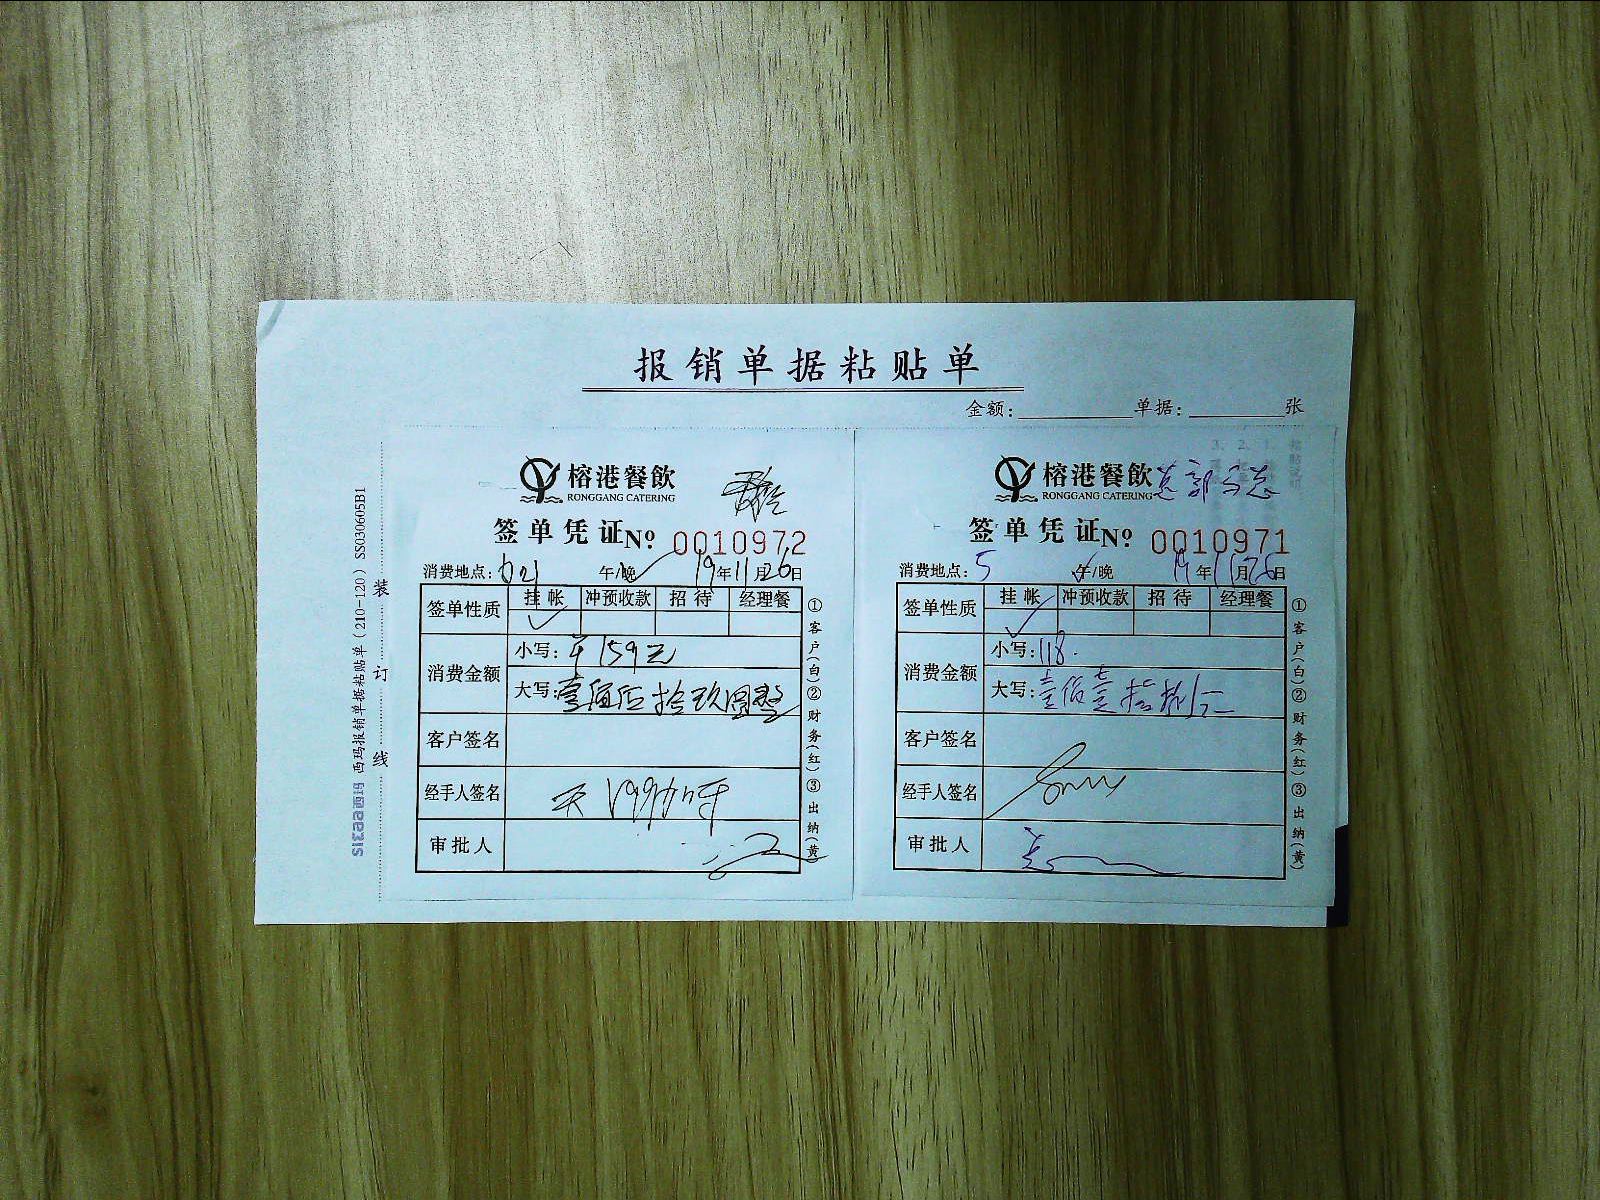 报销单据粘贴单
金额： 单据： 张
simaa西玛 西玛报销单据粘贴单（210-120） SS030605B1
装 订 线
榕港餐飲
RONGGANG CATERING
签单凭证 Nº 0010972
消费地点： 午/晚 19年11月26日
签单性质 挂帐 冲预收款 招待 经理餐
消费金额 小写：¥159元
大写：壹佰伍拾玖圆整
客户签名
经手人签名
审批人
①客户(白)②财务(红)③出纳(黄)
榕港餐飲
RONGGANG CATERING
签单凭证 Nº 0010971
消费地点：5 午/晚 19年11月26日
签单性质 挂帐 冲预收款 招待 经理餐
消费金额 小写：118.
大写：壹佰壹拾捌元
客户签名
经手人签名
审批人
①客户(白)②财务(红)③出纳(黄)